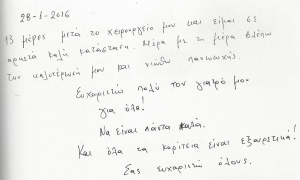 28-1-2016
13 μέρες μετά το χειρουργείο μου και είμαι σε
αρκετά καλή κατάσταση. Μέρα με τη μέρα βλέπω
την καλυτέρευσή μου και νιώθω πανευτυχής.
Ευχαριστώ πολύ τον γιατρό μου
για όλα!
Να είναι πάντα καλά.
Και όλα τα κορίτσια είναι εξαιρετικά!
Σας ευχαριστώ όλους.